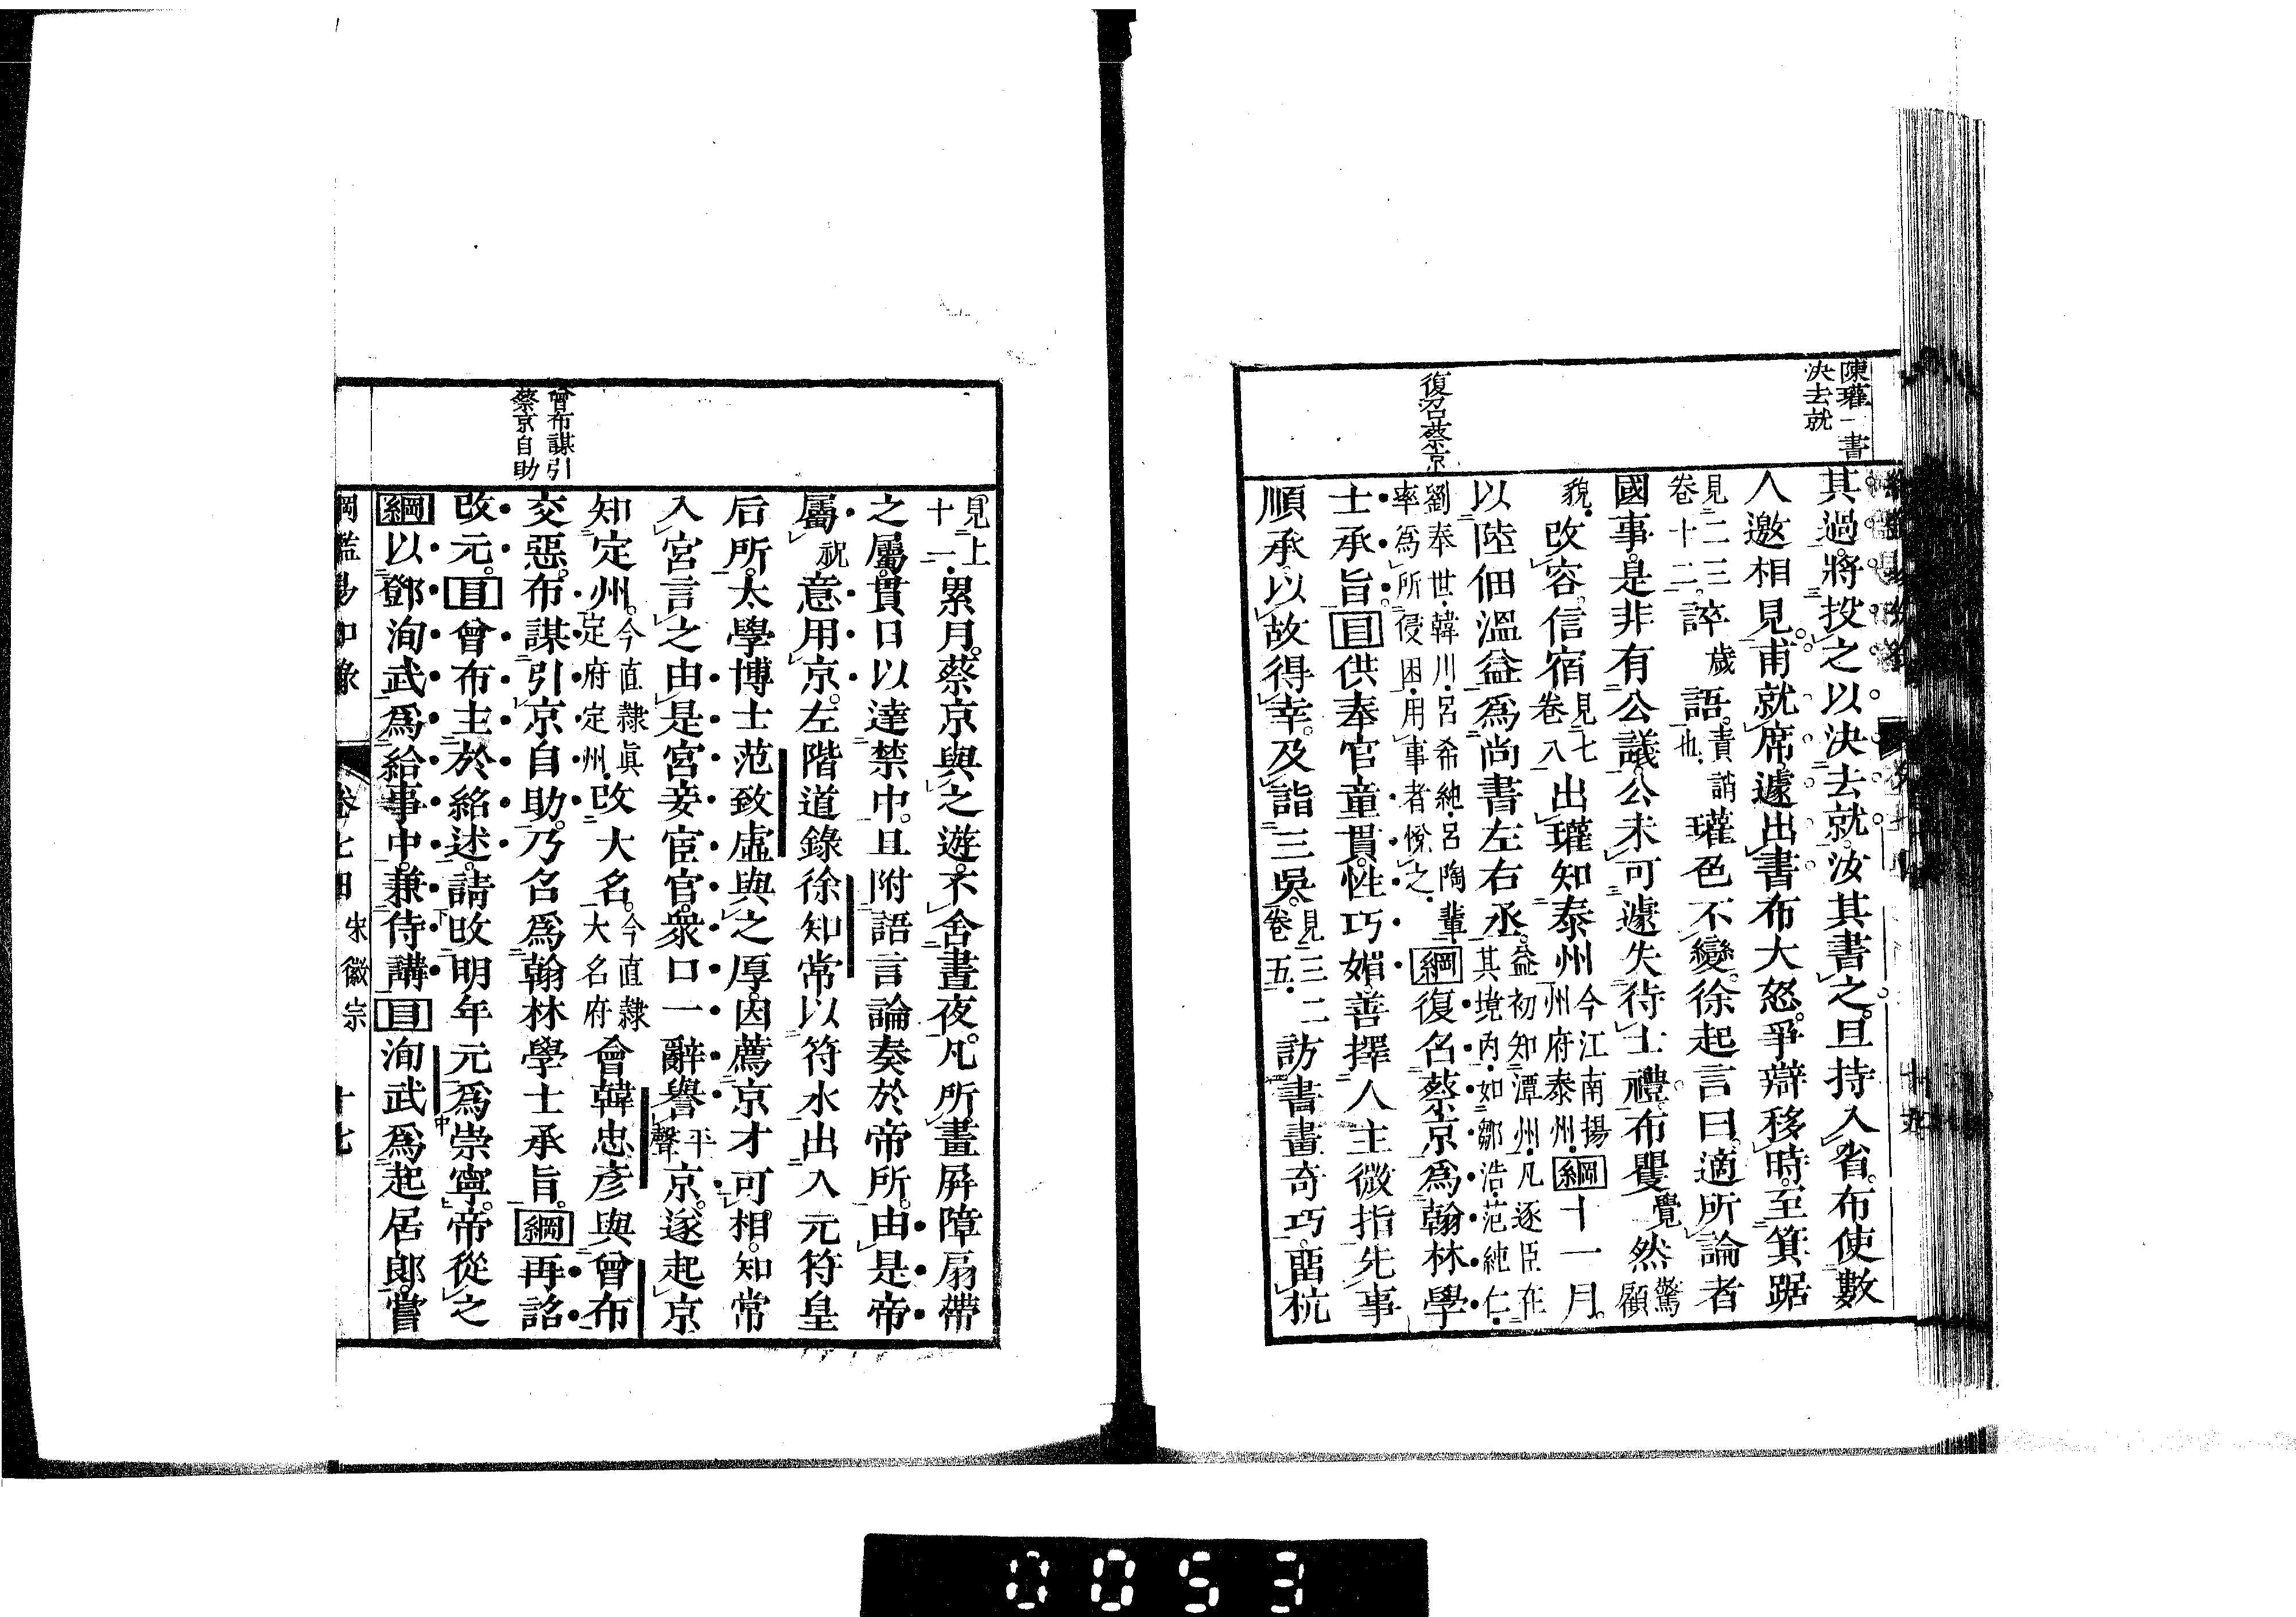 陳瓘一書
決去就
復召蔡京
其過。將投之以決去就。汝其書之。旦持入省。布使數
人邀相見。甫就席。遽出書。布大怒。爭辯移時。至箕踞
見二三卷十二。誶歲語。責誚也。瓘色不變。徐起言曰。適所論者
國事。是非有公議。公未可遽失待士禮。布矍覺然驚顧
貌。改容。信宿見七卷八出瓘知泰州今江南揚州府泰州。綱十一月。
以陸佃溫益爲尚書左右丞。益初知潭州。凡逐臣在其境內。如鄒浩。范純仁。
劉奉世。韓川。呂希純。呂陶輩率爲所侵困。用事者悅之。綱復召蔡京爲翰林學
士承旨。目供奉官童貫。性巧媚。善擇人主微指。先事
順承。以故得幸。及詣三吳。見三二卷五。訪書畫奇巧。畱杭
曾布謀引
蔡京自助
見上十一。累月。蔡京與之遊。不舍晝夜。凡所畫屏障扇帶
之屬。貫日以達禁中。且附語言論奏於帝所。由是帝
屬祝意用京。左階道錄徐知常以符水出入元符皇
后所。太學博士范致虛與之厚。因薦京才可相。知常
入宮言之。由是宮妾宦官。衆口一辭譽平聲京。遂起京
知定州。今直隸眞定府定州。改大名。今直隸大名府會韓忠彥與曾布
交惡。布謀引京自助。乃召爲翰林學士承旨。綱再詔
改元。目曾布主於紹述。請改明年元爲崇寧。帝從之
綱以鄧洵武爲給事中。兼侍講目洵武爲起居郎。嘗
宋徽宗 十七